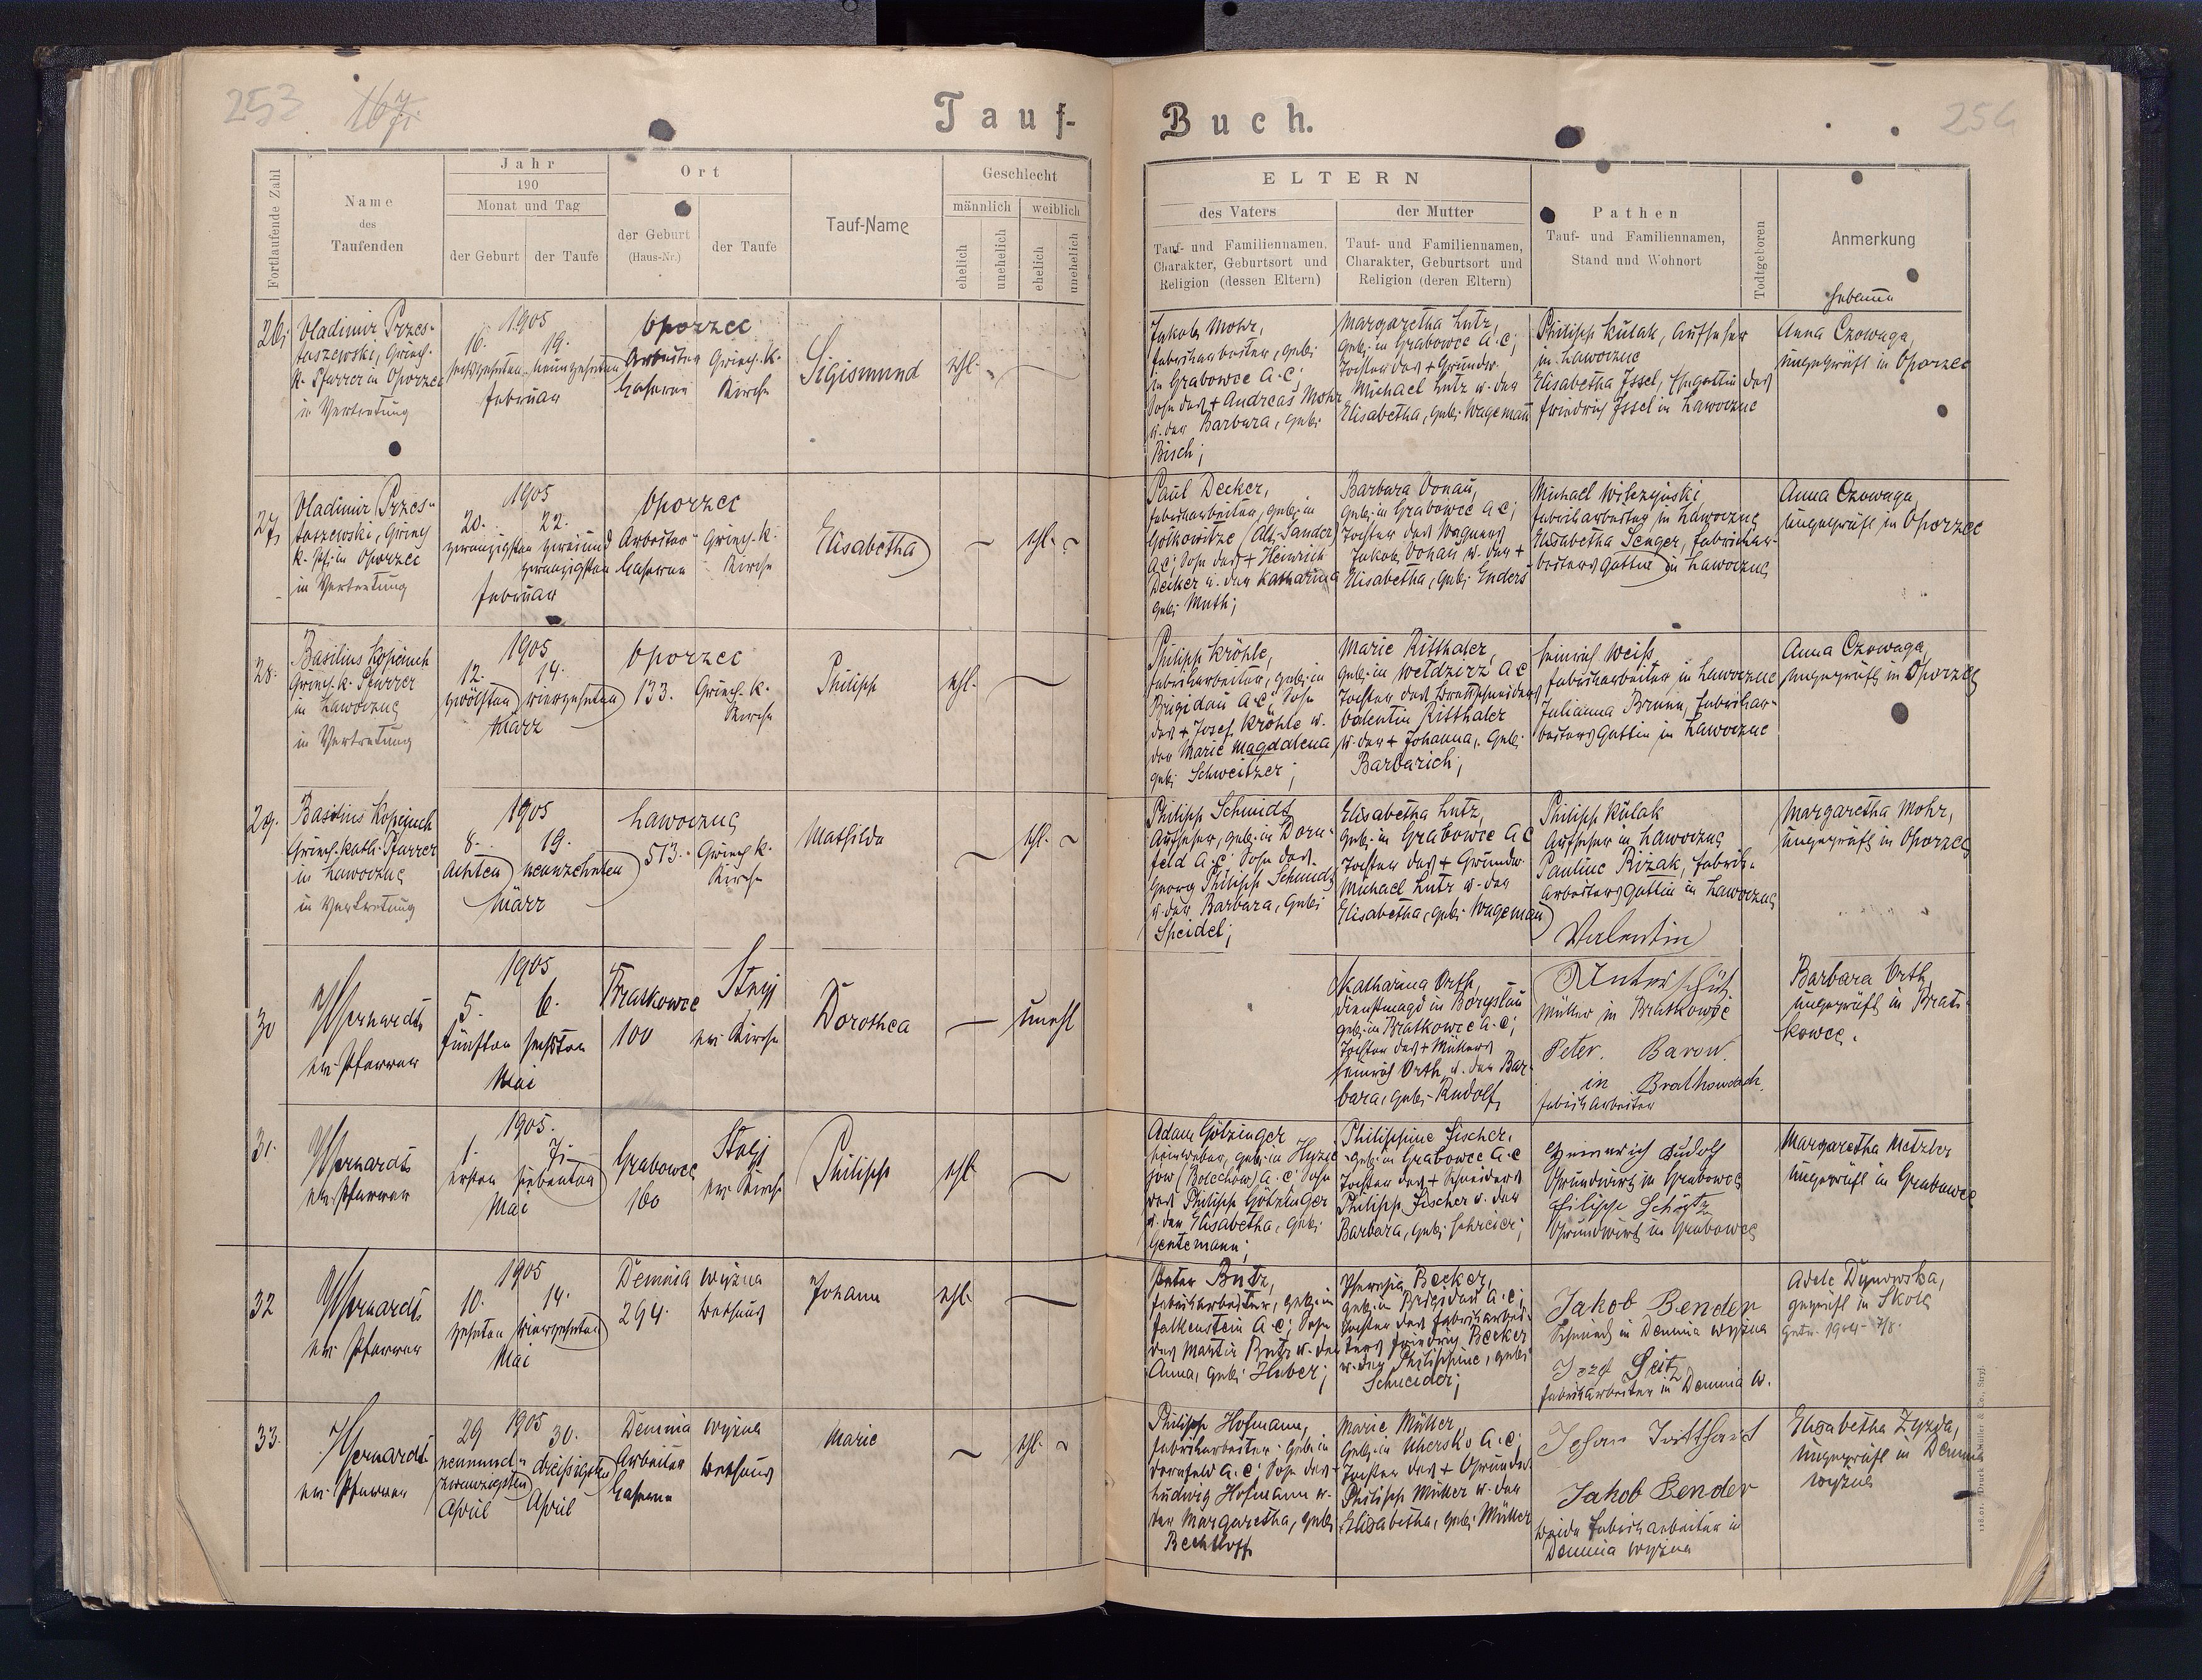 253 167.
Tauf-
Fortlaufende Zahl
Name
des
Taufenden
Jahr
190
Monat und Tag
der Geburt
der Taufe
Ort
der Geburt
(Haus-Nr.)
der Taufe
Tauf-Name
Geschlecht
männlich
weiblich
ehelich
unehelich
ehelich
unehelich
26.
Vladimir Przes-
taszewski, Griech.
k. Pfarrer in Oporzec
in Vertretung
1905
16. 19.
sechzehnten neunzehnten
Februar
Oporzec
Arbeiter Griech. k.
Caserne Kirche
Sigismund
ehl.
27.
Vladimir Przes-
taszewski, Griech
k. Pf. in Oporzec
in Vertretung
1905
20. 22.
zwanzigsten zweiund
zwanzigsten
Februar
Oporzec
Arbeiter Griech. k.
Caserne Kirche
Elisabetha
ehl.
28.
Basilius Kopciuch
Griech. k. Pfarrer
in Lawoczne
in Vertretung
1905
12. 14.
zwölften vierzehnten
März
Oporzec
133. Griech. k.
Kirche
Philipp
ehl.
29.
Basilius Kopciuch
Griech. kath. Pfarrer
in Lawoczne
in Vertretung
1905
8. 19.
Achten neunzehnten
März
Lawoczne
513. Griech k.
Kirche
Mathilda
ehl.
30
ev. Pfarrer
1905
5. 6.
fünften sechsten
Mai
Bratkowce Stryj
100 ev. Kirche
Dorothea
unehl
31.
ev. Pfarrer
1905.
1. 7.
ersten siebenten
Mai
Grabowce Stryj
160 ev. Kirche
Philipp
ehl.
32
ev. Pfarrer
1905
10. 14.
zehnten vierzehnten
Mai
Demnia wyżna
294. Bethaus
Johann
ehl.
33.
ev. Pfarrer
29 1905 30.
neunund- dreißigsten
zwanzigsten
April April
Demnia wyżna
Arbeiter Bethaus
Caserne
Marie
ehl.
Buch.
254
ELTERN
des Vaters
Tauf- und Familiennamen,
Charakter, Geburtsort und
Religion (dessen Eltern)
der Mutter
Tauf- und Familiennamen,
Charakter, Geburtsort und
Religion (deren Eltern)
Pathen
Tauf- und Familiennamen,
Stand und Wohnort
Todtgeboren
Anmerkung
Hebamme
Jakob Mohr,
Fabriksarbeiter, geb.
in Grabowce A.C;
Sohn des + Andreas Mohr
u. der Barbara, geb.
Bisch;
Margaretha Lutz,
geb. in Grabowce A.C;
Tochter des + Grundw.
Michael Lutz u. der
Elisabetha, geb. Wageman
Philipp Kulak, Aufseher
in Lawoczne
Elisabetha Issel, Ehegattin des
Friedrich Issel in Lawoczne
Anna Czowaga,
ungeprüft in Oporzec
Paul Decker,
Fabriksarbeiter, geb. in
Golkowitze (Alt-Sandez)
A.C; Sohn des + Heinrich
Decker u. der Katharina
geb. Muth;
Barbara Donau,
geb. in Grabowce A.C;
Tochter des Wagners
Jakob Donau u. der +
Elisabetha, geb. Enders
Michael Wilczyński
Fabriksarbeiter in Lawoczne
Elisabetha Senger, Fabriksar-
beiters Gattin in Lawoczne
Anna Czowaga,
ungeprüft in Oporzec
Philipp Kröhle,
Fabriksarbeiter, geb. in
Brigidau A.C; Sohn
des + Josef Kröhle u.
der Marie Magdalena
geb. Schweitzer;
Marie Ritthaler,
geb. in Weldzirz A.C
Tochter des Brettschneiders
Valentin Ritthaler
u. der + Johanna, geb.
Barbarich;
Heinrich Weiss
Fabriksarbeiter in Lawoczne
Julianna Brunn, Fabriksar-
beiters Gattin in Lawoczne
Anna Czowaga,
ungeprüft in Oporzec
Philipp Schmidt,
Aufseher, geb. in Dorn-
feld A.C; Sohn des
Georg Philipp Schmidt
u. der Barbara, geb.
Speidel;
Elisabetha Lutz,
geb. in Grabowce A.C
Tochter des + Grundw.
Michael Lutz u. der
Elisabetha, geb. Wageman
Philipp Kulak
Aufseher in Lawoczne
Pauline Rizak, Fabriks-
arbeiters Gattin in Lawoczne
Margaretha Mohr,
ungeprüft in Oporzec
Katharina Orth,
Dienstmagd in Boryslau
geb. in Bratkowce A.C;
Tochter des + Müllers
Heinrich Orth u. der Bar-
bara, geb. Rudolf,
Valentin
Unterschütz
Müller in Bratkowce
Peter. Baron.
in Brathowoch.
Fabriksarbeiter
Barbara Orth,
ungeprüft in Brat-
kowce.
Adam Götzinger
geb. in
(Bolechow) A.C; Sohn
des Philipp Götzinger
u. der Elisabetha, geb.
Gentemann;
Philippine Fischer,
geb. in Grabowce A.C
Tochter des + Schneiders
Philipp Fischer u. der
Barbara, geb. Schreier;
Heinrich Rudolf
Grundwirt in Grabowce
Filipp Schütz
Grundwirt in Grabowce
Margaretha Metzler
ungeprüft in Grabowce
Peter Butz,
Fabriksarbeiter, geb. in
Falkenstein A.C; Sohn
des Martin Butz u. der
Anna, geb. Huber;
Theresia Becker,
geb. in Brigidau A.C;
Tochter des Fabriksarbei-
ters Friedrich Becker
u. der Philippine, geb.
Schneider;
Jakob Bender
Schmied in Demnia wyżna
Seitz
Fabriksarbeiter in Demnia w.
Adele Dynowska,
geprüft in Skole
Philipp Hofmann,
Fabriksarbeiter, geb. in
Dornfeld A.C; Sohn des
Ludwig Hofmann u.
der Margaretha, geb.
Bechtloff
Marie Müller
geb. in Uhersko A.C;
Tochter des + Grundw.
Philipp Müller u. der
Elisabetha, geb. Müller
Jakob Bender
beide Fabriksarbeiter in
Demnia wyżna
Elisabetha Zyzda,
ungeprüft in Demnia
wyżna
Druck Müller & Co., Stryj.